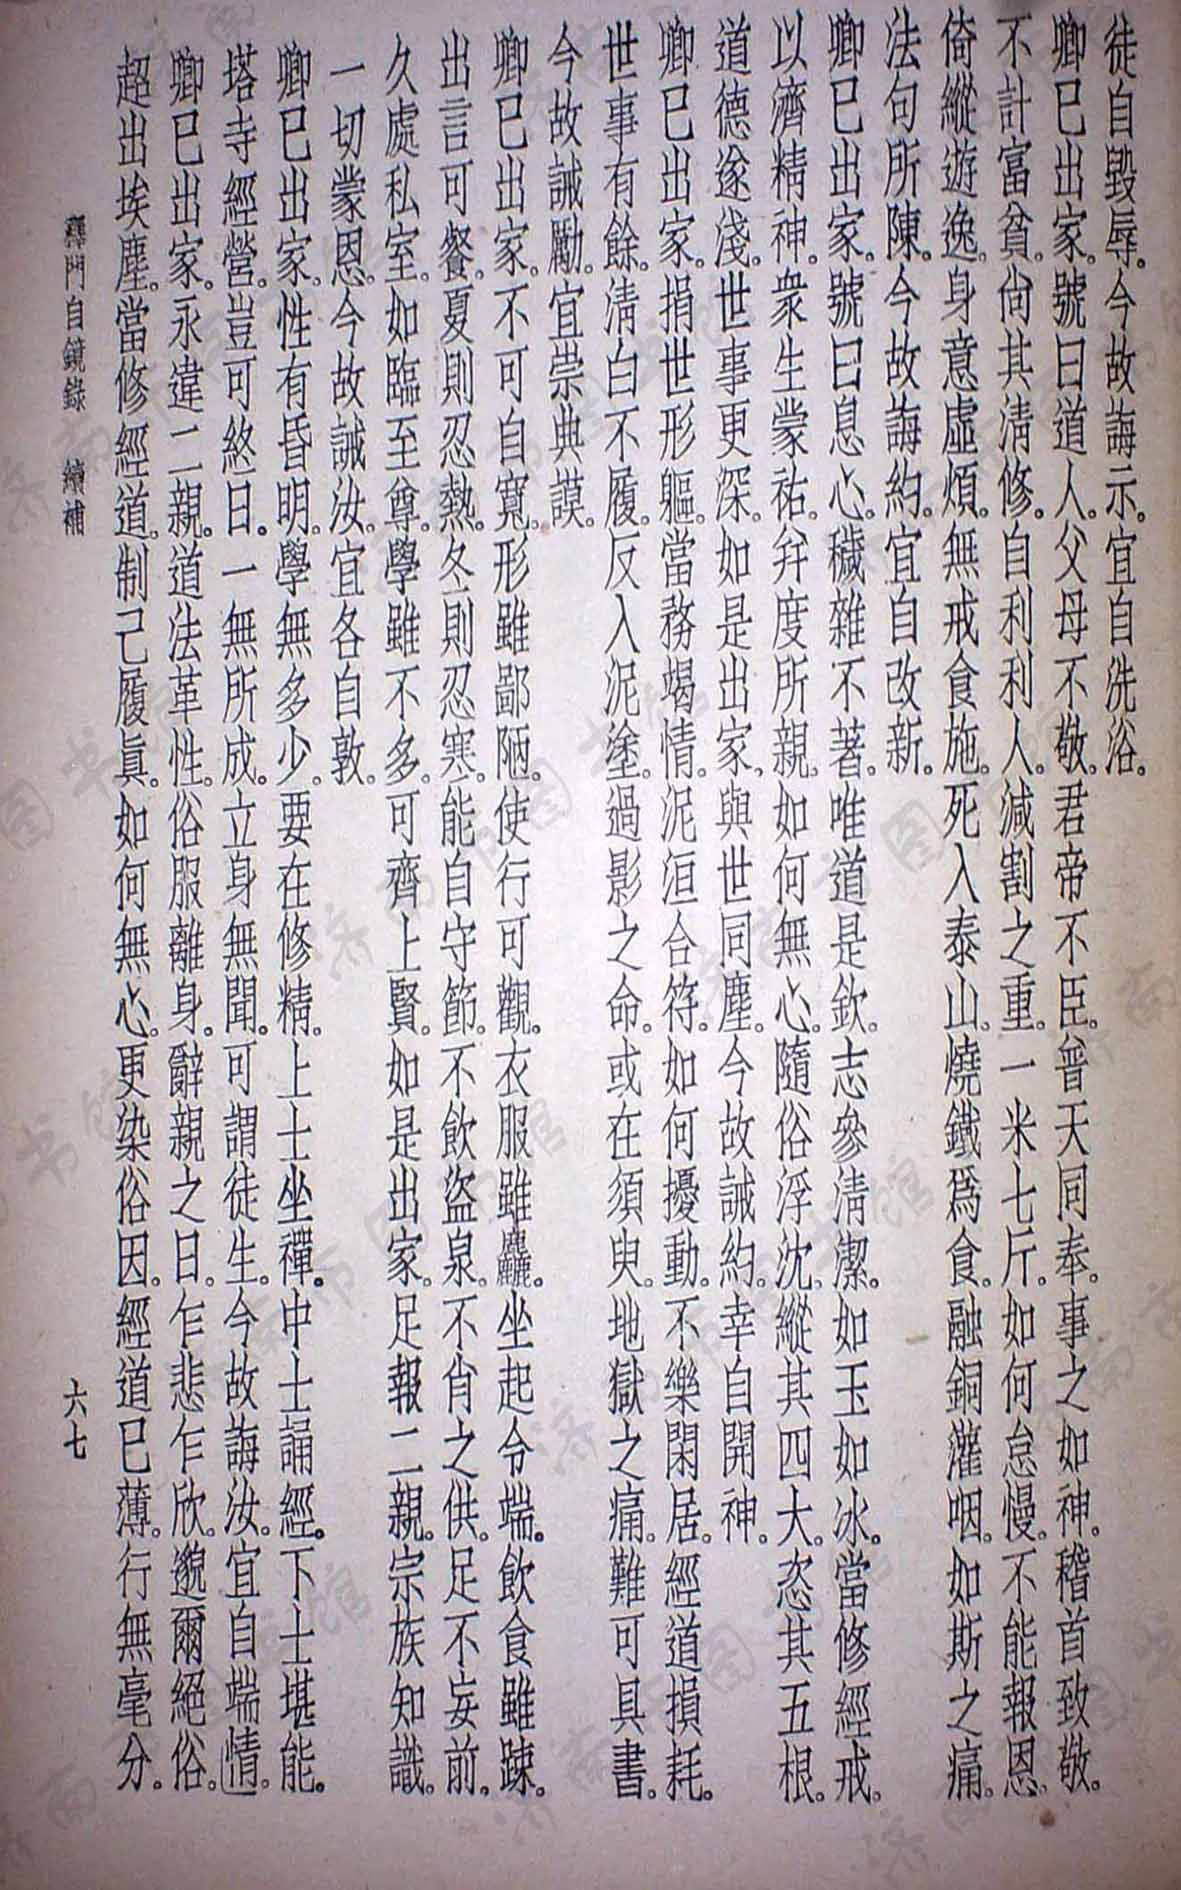 徒自毀辱。今故誨示。宜自洗浴。
卿已出家。號曰道人。父母不敬。君帝不臣。普天同奉。事之如神。稽首致敬。
不計富貧。尙其淸修。自利利人。減割之重。一米七斤。如何怠慢。不能報恩。
倚縱遊逸。身意虛煩。無戒食施。死入泰山。燒鐵爲食。融銅灌咽。如斯之痛。
法句所陳。今故誨約。宜自改新。
卿已出家。號曰息心。穢雜不著。唯道是欽。志參淸潔。如玉如冰。當修經戒
以濟精神。衆生蒙祐。幷度所親。如何無心。隨俗浮沈。縱其四大。恣其五根。
道德遂淺。世事更深。如是出家。與世同塵。今故誡約。幸自開神。
卿已出家。捐世形軀。當務竭情。泥洹合符。如何擾動。不樂閑居。經道損耗。
世事有餘。淸白不履。反入泥塗。過影之命。或在須臾。地獄之痛。難可具書。
今故誡勵。宜崇典謨。
卿已出家。不可自寬。形雖鄙陋。使行可觀。衣服雖麤。坐起令端。飮食雖踈。
出言可餐。夏則忍熱。冬則忍寒。能自守節。不飮盜泉。不肖之供。足不妄前。
久處私室。如臨至尊。學雖不多。可齊上賢。如是出家。足報二親。宗族知識。
一切蒙恩。今故誡汝。宜各自敦。
卿已出家。性有昏明。學無多少。要在修精。上士坐禪。中士誦經。下士堪能。
塔寺經營。豈可終日。一無所成。立身無聞。可謂徒生。今故誨汝。宜自端情。
卿已出家。永違二親。道法革性。俗服離身。辭親之日。乍悲乍欣。邈爾絕俗。
超出埃塵。當修經道。制己履眞。如何無心。更染俗因。經道已薄。行無毫分。
釋門自鏡錄 續補 六七